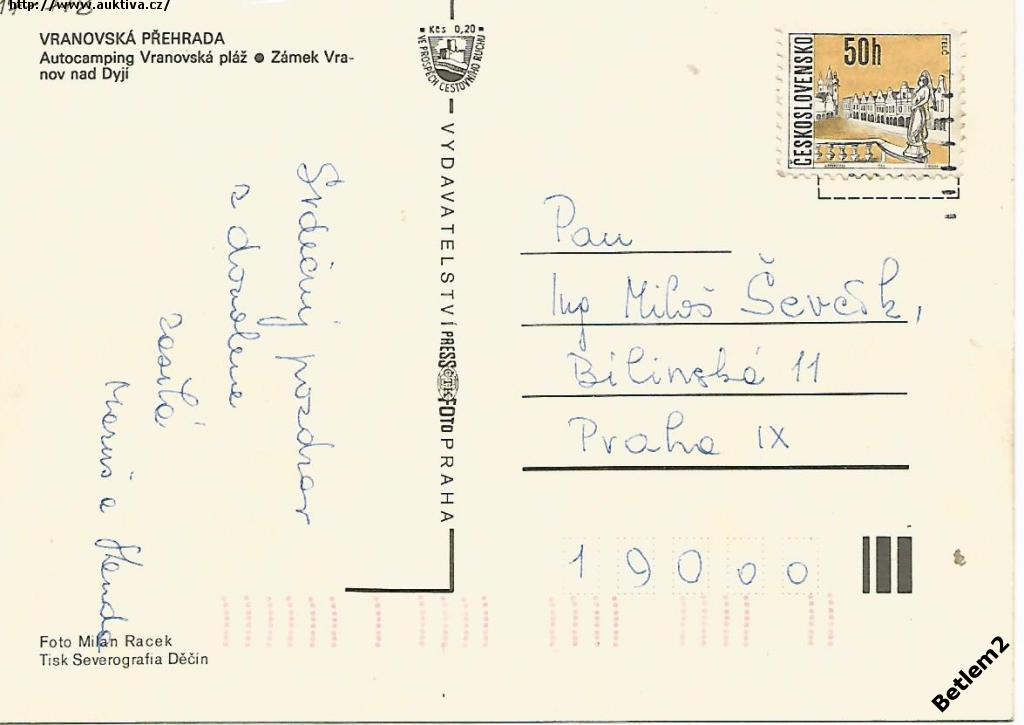 http://www.auktiva.cz/
VRANOVSKÁ PŘEHRADA
Autocamping Vranovská pláž ● Zámek Vra-
nov nad Dyjí
Kčs 0,20
VE PROSPĚCH CESTOVNÍHO RUCHU
ČESKOSLOVENSKO
50h
TELČ
VYDAVATELSTVÍ PRESSFOTO PRAHA
ČTK
Srdečný pozdrav
z dovolene
zasílá
a Henda
Pan
Ing Miloš Ševčík,
Bílinská 11
Praha IX
19000
Foto Milan Racek
Tisk Severografia Děčín
Betlem2